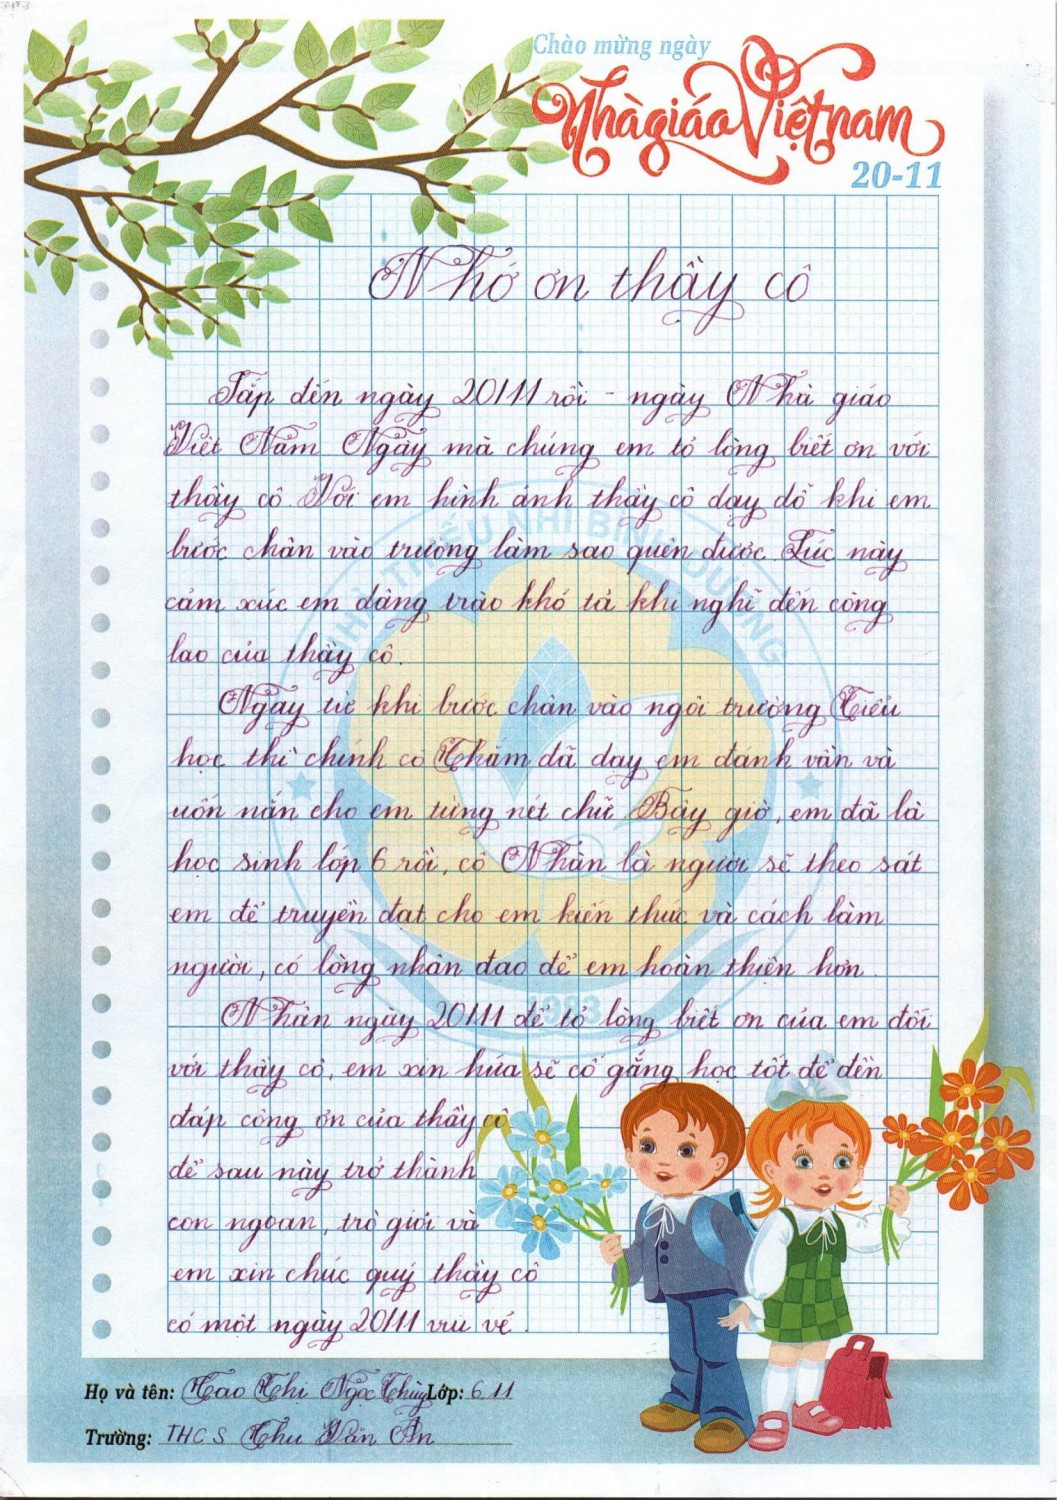 Chào mừng ngày
Nhà giáo Việt nam
20-11
Nhớ ơn thầy cô
Sắp đến ngày 20/11 rồi - ngày Nhà giáo
Việt Nam Ngày mà chúng em tỏ lòng biết ơn với
thầy cô. Với em hình ảnh thầy cô dạy dỗ khi em
bước chân vào trường làm sao quên được. Lúc này
cảm xúc em dâng trào khó tả khi nghĩ đến công
lao của thầy cô.
Ngay từ khi bước chân vào ngôi trường Tiểu
học thì chính cô Thắm đã dạy em đánh vần và
uốn nắn cho em từng nét chữ. Bây giờ, em đã là
học sinh lớp 6 rồi, cô Nhàn là người sẽ theo sát
em để truyền đạt cho em kiến thức và cách làm
người, có lòng nhân đạo để em hoàn thiện hơn.
Nhân ngày 20/11 để tỏ lòng biết ơn của em đối
với thầy cô, em xin hứa sẽ cố gắng học tốt để đền
đáp công ơn của thầy cô
để sau này trở thành
con ngoan, trò giỏi và
em xin chúc quý thầy cô
có một ngày 20/11 vui vẻ.
NHÀ THIẾU NHI BÌNH DƯƠNG
1983
Họ và tên: Cao Thị Ngọc Thùy Lớp: 6.11
Trường: THCS Chu Văn An